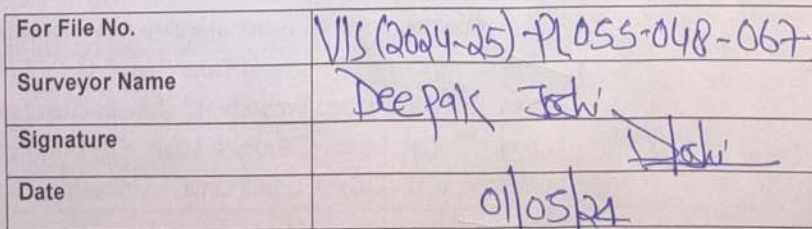 For File No. VIS(2024-25)-PL055-048-067
Surveyor Name Deepak Joshi
Signature Joshi
Date 01/05/24